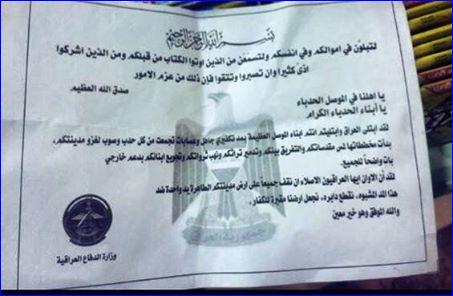 بسم الله الرحمن الرحيم
لتبلون في اموالكم وفي انفسكم ولتسمعن من الذين اوتوا الكتاب من قبلكم ومن الذين اشركوا
اذى كثيرا وان تصبروا وتتقوا فإن ذلك من عزم الامور
صدق الله العظيم
يا اهلنا في الموصل الحدباء
يا أبناء الحدباء الكرام
لقد ابتلى العراق وابتليتم انتم ابناء الموصل العظيمة بمد تكفيري جاهل وعصابات تجمعت من كل حدب وصوب لغزو مدينتكم،
بدأت مخططاتها لمس مقدساتكم والتفريق بينكم وتدمير تراثكم ونهب ثرواتكم وتجويع ابنائكم بدعم خارجي
بات واضحاً للجميع.
لقد آن الاوان ايها العراقيون الاصلاء ان نقف جميعاً على ارض مدينتكم الطاهرة يد واحدة ضد
هذا المد المشبوه، نقطع دابره، نجعل ارضنا مقبرة للكفار.
والله الموفق وهو خير معين
جمهورية العراق
وزارة الدفاع العراقية